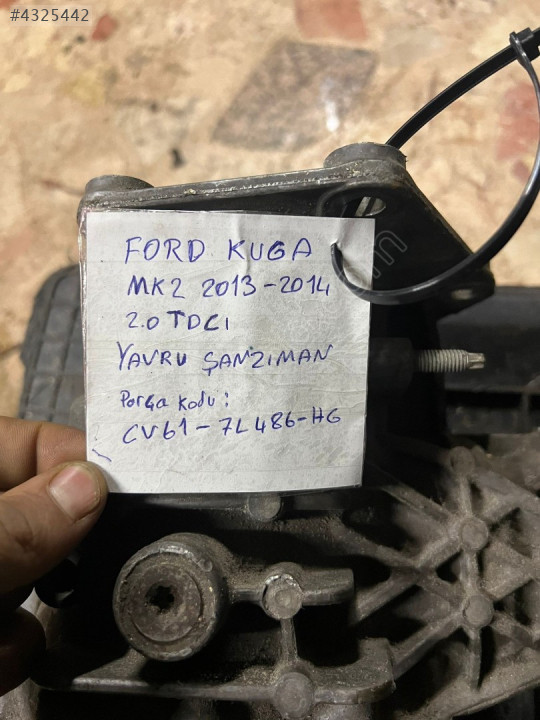 #4325442
FORD KUGA
MK2 2013-2014
2.0 TDCI
YAVRU ŞANZIMAN
Parça Kodu:
CV61-7L486-HG